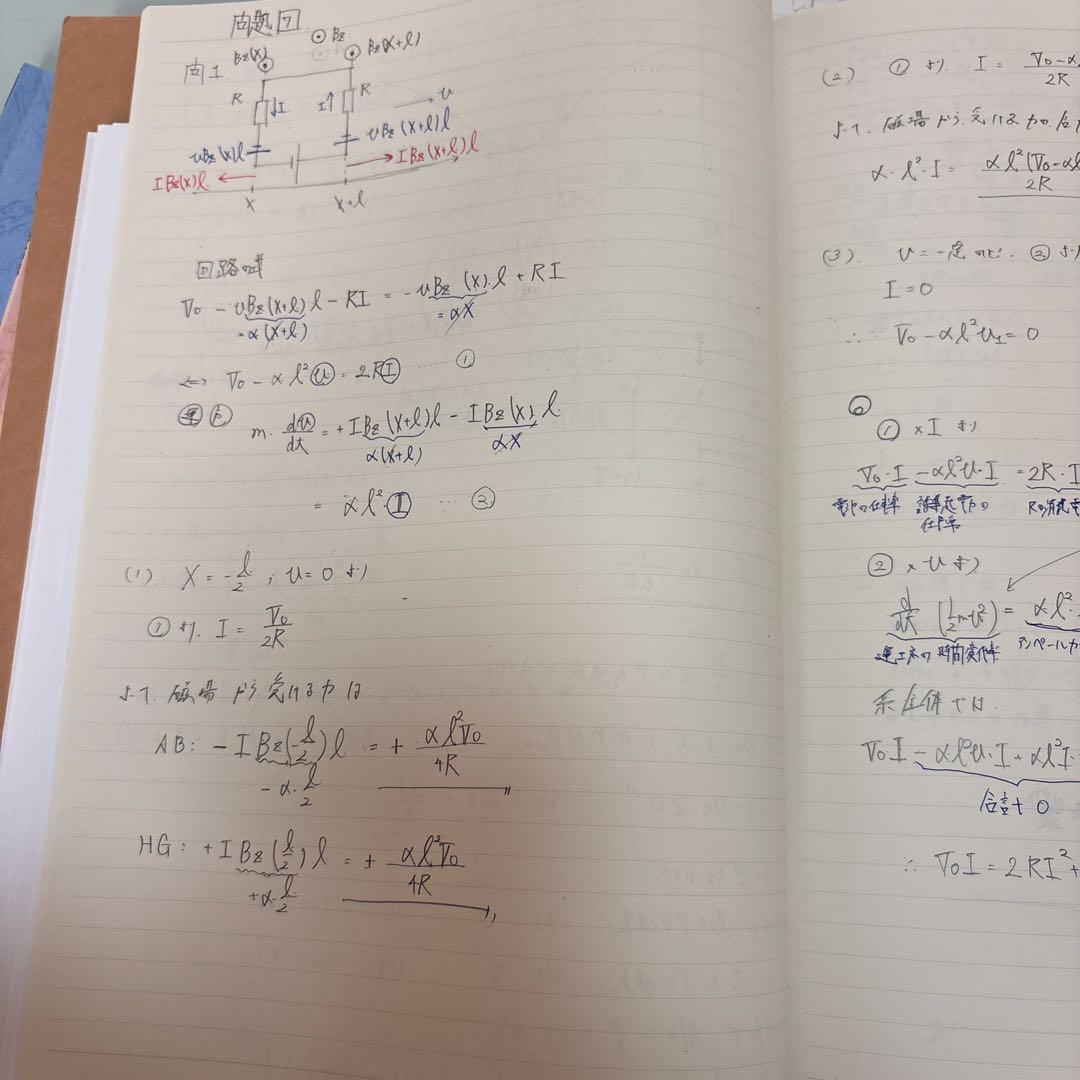 問題 7
⊙ Bz
Bz(x)
Bz(x+l)
問1
R
↓I
I↑
R
v
vBz(x)l
vBz(x+l)l
IBz(x)l
IBz(x+l)l
x
x+l
回路
V0 - vBz(x+l)l - RI = -vBz(x)l + RI
= α(x+l)
= αx
⇔ V0 - αl²v = 2RI …… ①
m・dv/dt = +IBz(x+l)l - IBz(x)l
α(x+l)
αx
= αl²・I … ②
(1) x = -l/2, v = 0 より
①より. I = V0/2R
よって. 磁場から受ける力は
AB: -IBz(-l/2)l = + αl²V0/4R
-α・l/2
HG: +IBz(l/2)l = + αl²V0/4R
+α・l/2
(2) ①より. I = V0-α
2R
よって. 磁場から受ける力の合
α・l²・I = αl²(V0-αl
2R
(3) v = 一定のとき. ②より
I = 0
∴ V0 - αl²v1 = 0
① × I より
V0・I - αl²v・I = 2R・I
電池の仕事率
誘導起電力の
仕事率
Rの消費電
② × v より
d/dt (1/2 mv²) = αl²・
運エネの時間変化率
アンペールカ
系全体では…
V0I - αl²v・I + αl²I・
合計 0
∴ V0I = 2RI² +